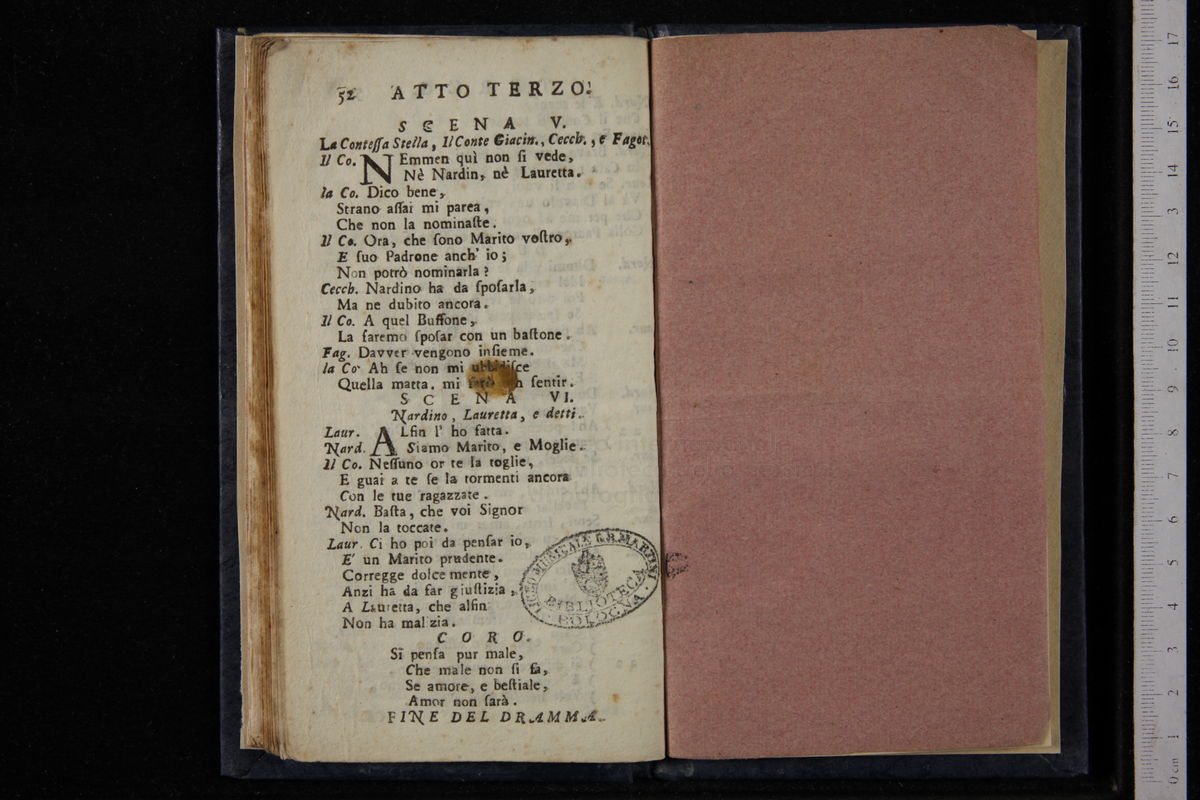 52 ATTO TERZO.
SCENA V.
La Contessa Stella, Il Conte Giacin., Cecch., e Fagot.
Il Co. NEmmen quì non si vede,
Nè Nardin, nè Lauretta.
la Co. Dico bene,
Strano assai mi parea,
Che non la nominaste.
Il Co. Ora, che sono Marito vostro,
E suo Padrone anch' io;
Non potrò nominarla?
Cecch. Nardino ha da sposarla,
Ma ne dubito ancora.
Il Co. A quel Buffone,
La faremo sposar con un bastone.
Fag. Davver vengono insieme.
la Co. Ah se non mi ubbidisce
Quella matta. mi sentir.
SCENA VI.
Nardino, Lauretta, e detti.
Laur. ALfin l' ho fatta.
Nard. Siamo Marito, e Moglie.
Il Co. Nessuno or te la toglie,
E guai a te se la tormenti ancora
Con le tue ragazzate.
Nard. Basta, che voi Signor
Non la toccate.
Laur. Ci ho poi da pensar io,
E' un Marito prudente.
Corregge dolce mente,
Anzi ha da far giustizia,
A Lauretta, che alfin
Non ha malizia.
CORO.
Si pensa pur male,
Che male non si fa,
Se amore, e bestiale,
Amor non sarà.
FINE DEL DRAMMA.
LICEO MUSICALE G.B. MARTINI
BIBLIOTECA
BOLOGNA
0 cm 1 2 3 4 5 6 7 8 9 10 11 12 3 14 15 16 17